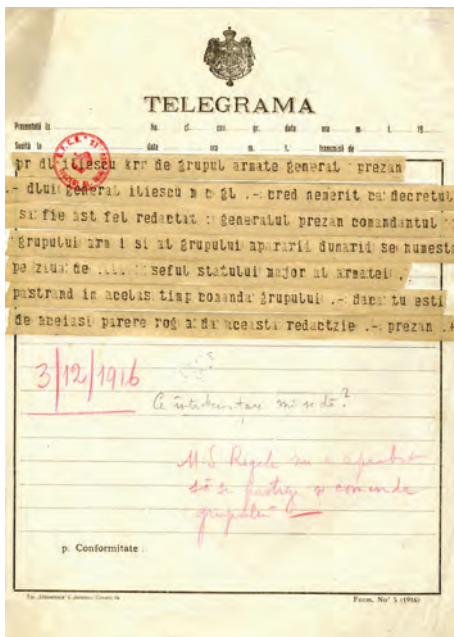 TELEGRAMA
Presentată la No. cl. cuv. gr. data ora m. t. 19
Sosită la data ora m. t. transmisă de
pr dl iliescu krr de grupul armate general prezan
.- dlui general iliescu m c gl .- cred nemerit ca decretul
sa fie ast fel redactat : generalul prezan comandantul
grupului arm i si al grupului apararii dunarii se numeste
pe ziua de ..... seful statului major al armatei ,
pastrand in acelas timp comanda grupului .- daca tu esti
de aceiasi parere rog a da aceasta redactzie .- prezan .+
3/12/1916
Ce întrebuințare mi se dă?
M.S. Regele nu a aprobat
să se păstreze și comanda
grupului
p. Conformitate
Form. No. 5 (1916)